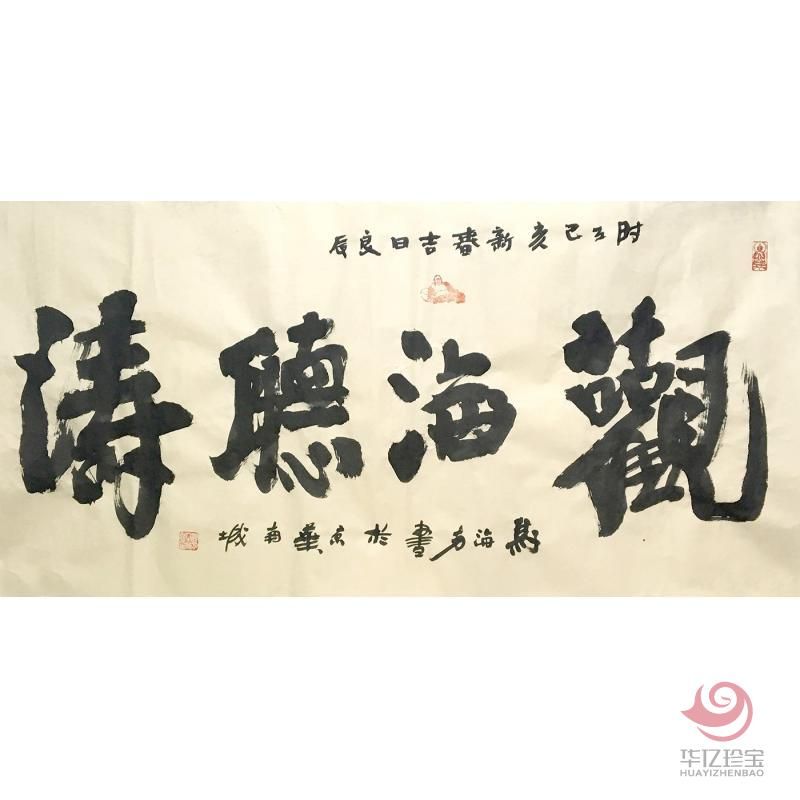 时在己亥新春吉日良辰
觀海聽濤
馬海方書於京華南城
华亿珍宝
HUAYIZHENBAO